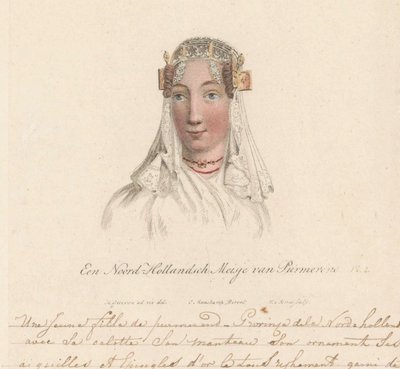 Een Noord-Hollandsch Meisje van Purmerend Pl. 2.
ad viv. del. Direxit Sculp.
Une jeune fille de purmerend - Province de la Nord hollande
avec sa calotte Son manteau Son ornement Ses
aiguilles et Epingles d'or le tout richement garni de